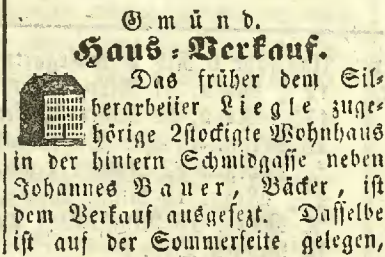 Gmünd.
Haus-Verkauf.
Das früher dem Sil-
berarbeiter Liegle zuge-
hörige 2stockigte Wohnhaus
in der hintern Schmidgasse neben
Johannes Bauer, Bäcker, ist
dem Verkauf ausgesezt. Dasselbe
ist auf der Sommerseite gelegen,